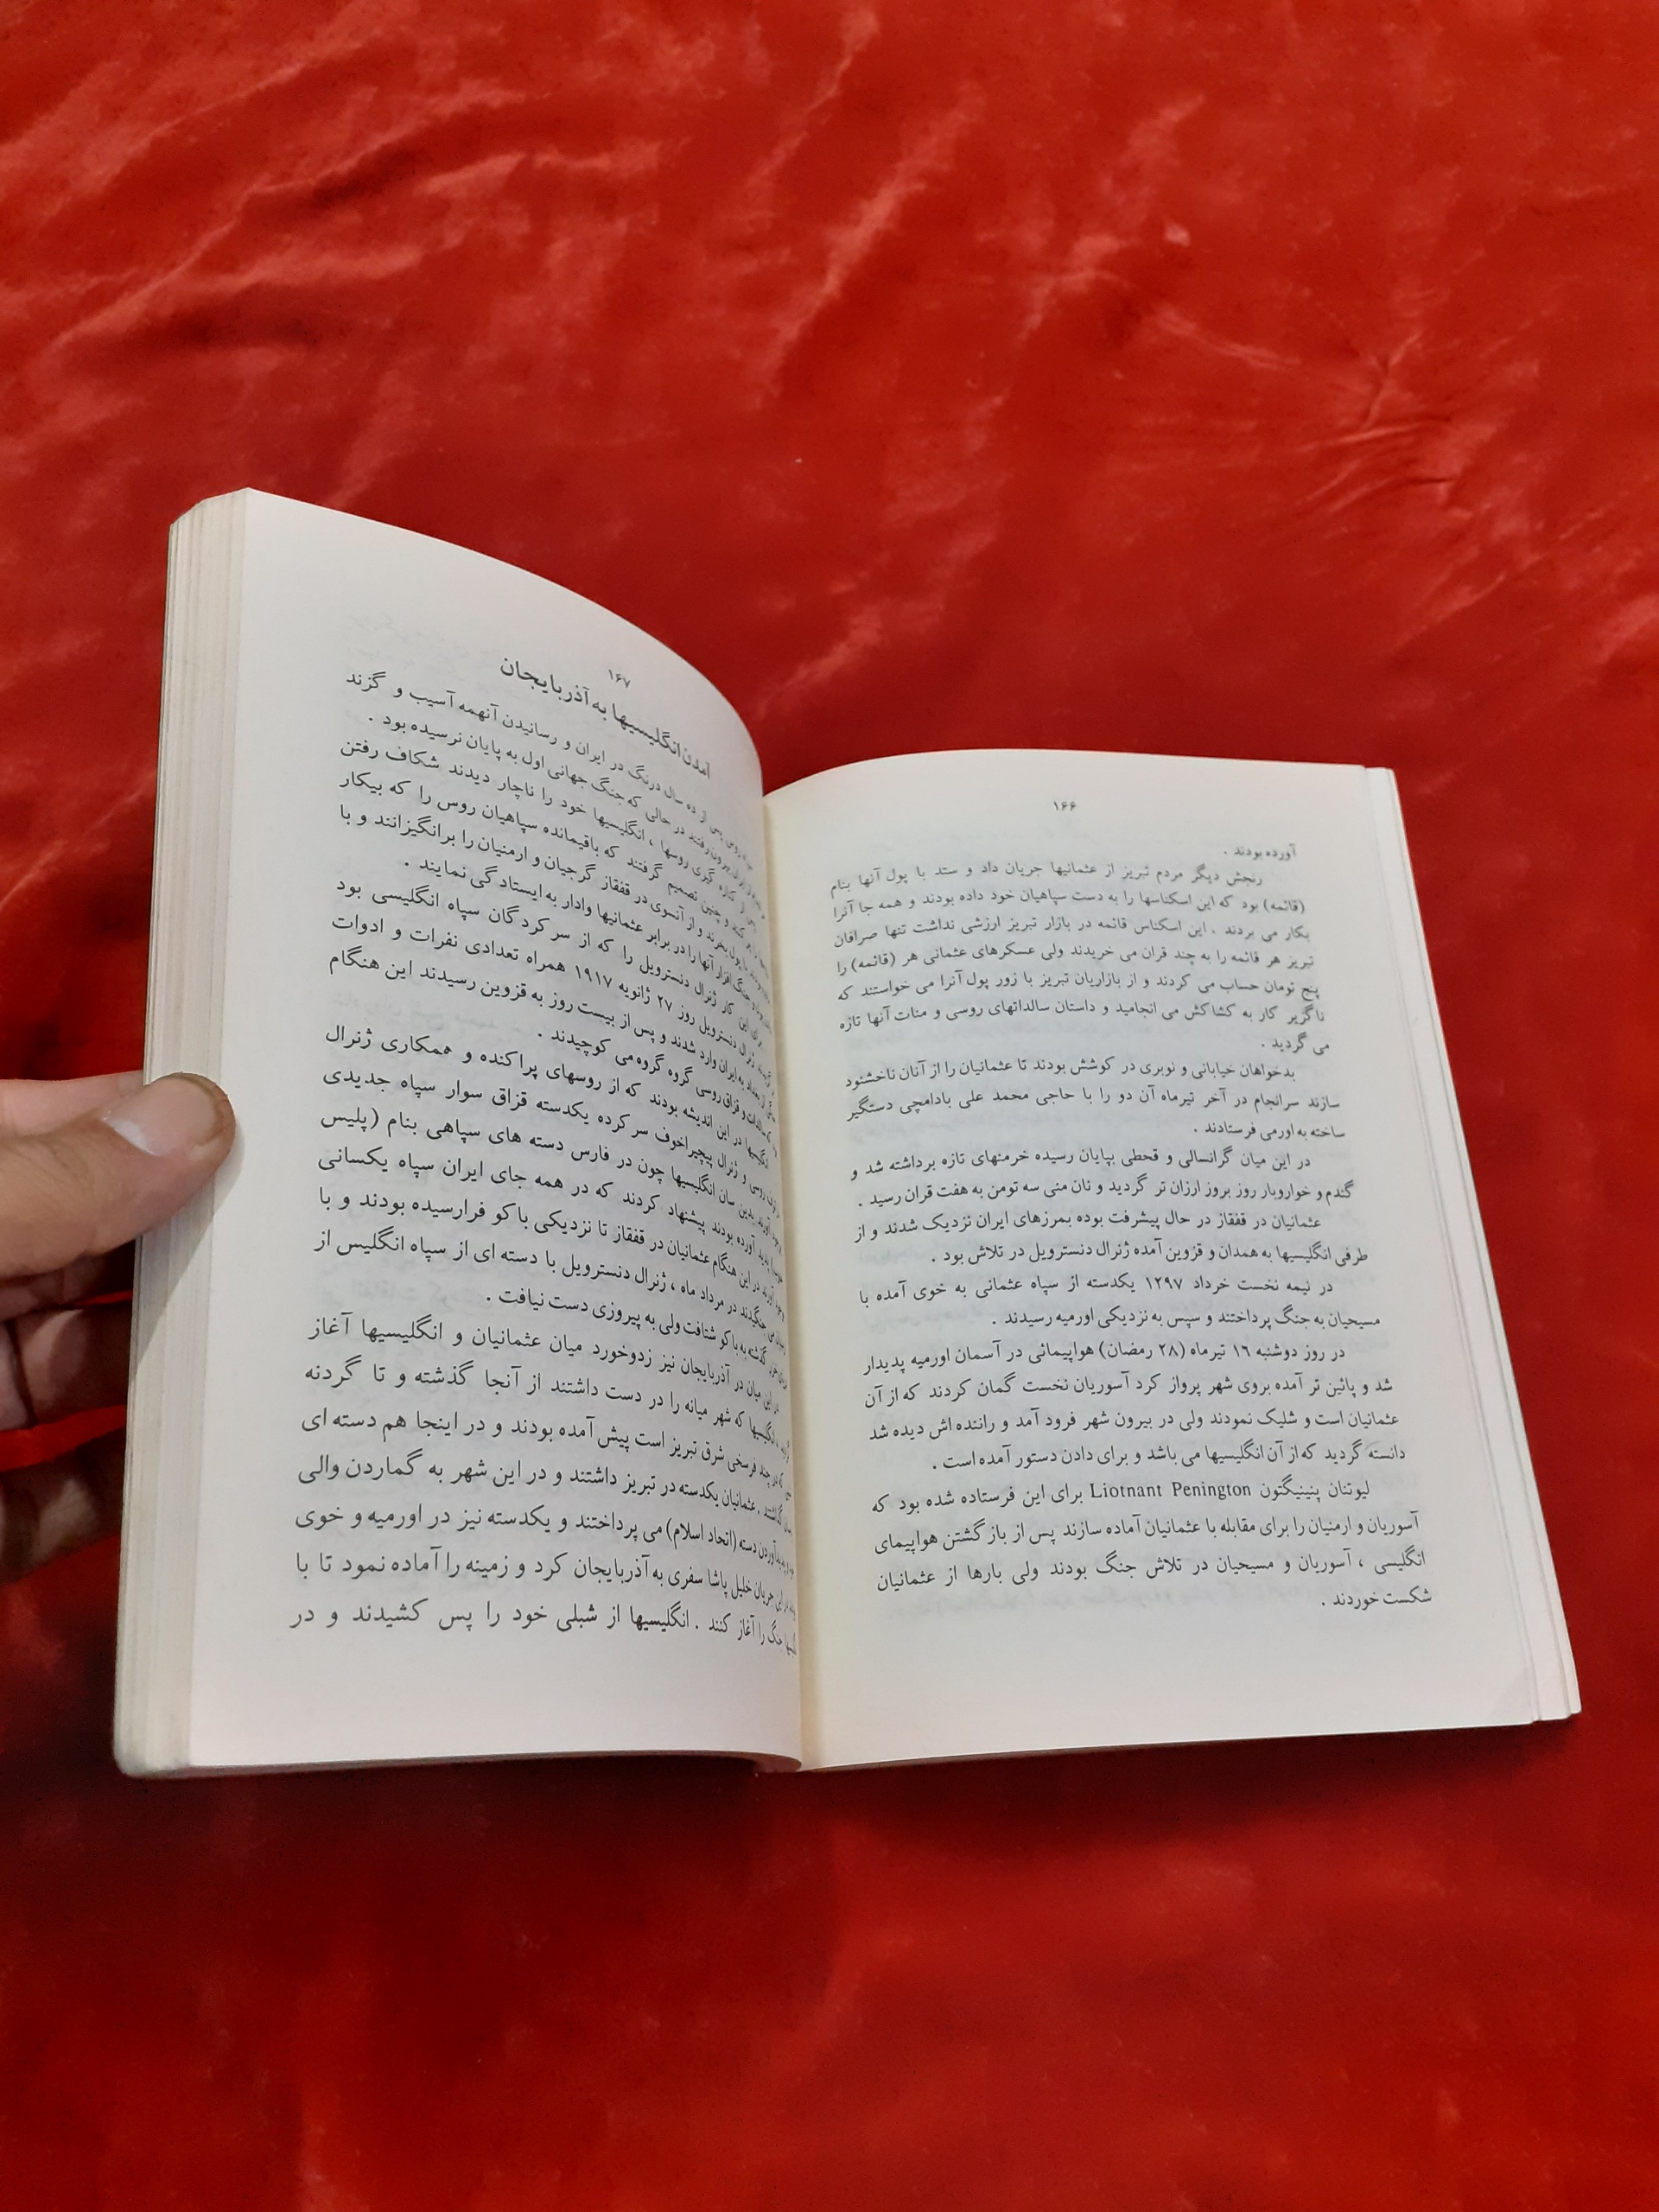 ۱۶۶
آورده بودند .
رنجش دیگر مردم تبریز از عثمانیها جریان داد و ستد با پول آنها بنام
(قائمه) بود که این اسکناسها را به دست سپاهیان خود داده بودند و همه جا آنرا
بکار می بردند . این اسکناس قائمه در بازار تبریز ارزشی نداشت تنها صرافان
تبریز هر قائمه را به چند قران می خریدند ولی عسکرهای عثمانی هر (قائمه) را
پنج تومان حساب می کردند و از بازاریان تبریز با زور پول آنرا می خواستند که
ناگزیر کار به کشاکش می انجامید و داستان سالداتهای روسی و منات آنها تازه
می گردید .
بدخواهان خیابانی و نوبری در کوشش بودند تا عثمانیان را از آنان ناخشنود
سازند سرانجام در آخر تیرماه آن دو را با حاجی محمد علی بادامچی دستگیر
ساخته به اورمی فرستادند .
در این میان گرانسالی و قحطی بپایان رسیده خرمنهای تازه برداشته شد و
گندم و خواروبار روز بروز ارزان تر گردید و نان منی سه تومن به هفت قران رسید .
عثمانیان در قفقاز در حال پیشرفت بوده بمرزهای ایران نزدیک شدند و از
طرفی انگلیسیها به همدان و قزوین آمده ژنرال دنسترویل در تلاش بود .
در نیمه نخست خرداد ۱۲۹۷ یکدسته از سپاه عثمانی به خوی آمده با
مسیحیان به جنگ پرداختند و سپس به نزدیکی اورمیه رسیدند .
در روز دوشنبه ۱۶ تیرماه (۲۸ رمضان) هواپیمائی در آسمان اورمیه پدیدار
شد و پائین تر آمده بروی شهر پرواز کرد آسوریان نخست گمان کردند که از آن
عثمانیان است و شلیک نمودند ولی در بیرون شهر فرود آمد و راننده اش دیده شد
دانسته گردید که از آن انگلیسیها می باشد و برای دادن دستور آمده است .
لیوتنان پنینیگتون Liotnant Penington برای این فرستاده شده بود که
آسوریان و ارمنیان را برای مقابله با عثمانیان آماده سازند پس از بازگشتن هواپیمای
انگلیسی ، آسوریان و مسیحیان در تلاش جنگ بودند ولی بارها از عثمانیان
شکست خوردند .
۱۶۷
آمدن انگلیسیها به آذربایجان
روس پس از ده سال درنگ در ایران و رسانیدن آنهمه آسیب و گزند
از ایران بیرون رفتند در حالی که جنگ جهانی اول به پایان نرسیده بود .
پس از کناره گیری روسها ، انگلیسیها خود را ناچار دیدند شکاف رفتن
کنند و چنین تصمیم گرفتند که باقیمانده سپاهیان روس را که بیکار
با پول بخرند و از آنسوی در قفقاز گرجیان و ارمنیان را برانگیزانند و با
جنگ افزار آنها را در برابر عثمانیها وادار به ایستادگی نمایند .
برای این کار ژنرال دنسترویل را که از سرکردگان سپاه انگلیسی بود
ژنرال دنسترویل روز ۲۷ ژانویه ۱۹۱۷ همراه تعدادی نفرات و ادوات
از بغداد به ایران وارد شدند و پس از بیست روز به قزوین رسیدند این هنگام
سالدات و قزاق روسی گروه گروه می کوچیدند .
انگلیسیها در این اندیشه بودند که از روسهای پراکنده و همکاری ژنرال
روسی و ژنرال پیچیراخوف سرکرده یکدسته قزاق سوار سپاه جدیدی
آورند بدین سان انگلیسیها چون در فارس دسته های سپاهی بنام (پلیس
پدید آورده بودند پیشنهاد کردند که در همه جای ایران سپاه یکسانی
آورند در این هنگام عثمانیان در قفقاز تا نزدیکی باکو فرارسیده بودند و با
می جنگیدند در مرداد ماه ، ژنرال دنسترویل با دسته ای از سپاه انگلیس از
گذشته به باکو شتافت ولی به پیروزی دست نیافت .
در این میان در آذربایجان نیز زدوخورد میان عثمانیان و انگلیسیها آغاز
انگلیسیها که شهر میانه را در دست داشتند از آنجا گذشته و تا گردنه
که در چند فرسخی شرق تبریز است پیش آمده بودند و در اینجا هم دسته ای
گذاشتند . عثمانیان یکدسته در تبریز داشتند و در این شهر به گماردن والی
پدید آوردن دسته (اتحاد اسلام) می پرداختند و یکدسته نیز در اورمیه و خوی
در این جریان خلیل پاشا سفری به آذربایجان کرد و زمینه را آماده نمود تا با
جنگ را آغاز کنند . انگلیسیها از شبلی خود را پس کشیدند و در